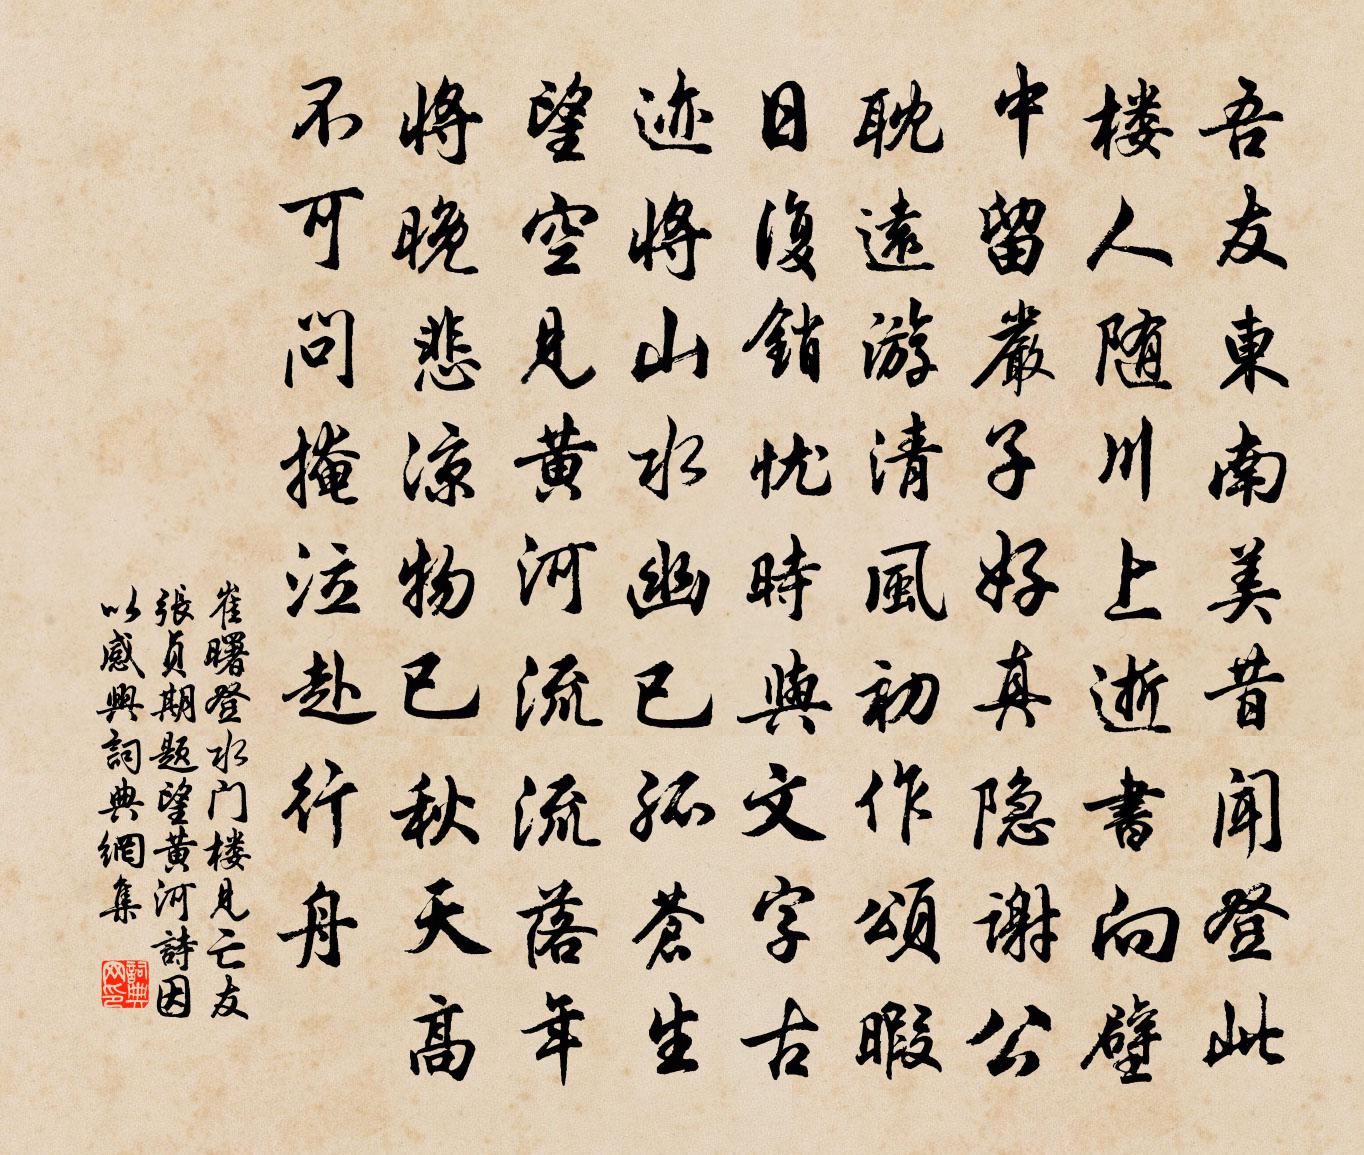 吾友東南美昔聞登此
楼人随川上逝書向壁
中留嚴子好真隐謝公
耽遠游清風初作頌暇
日復銷忧時與文字古
迹将山水幽已孤蒼生
望空見黄河流流落年
将晚悲凉物已秋天高
不可問掩泣赴行舟
崔曙登水门楼見亡友
張貞期题望黄河詩因
以感興詞典網集
詞典
网印